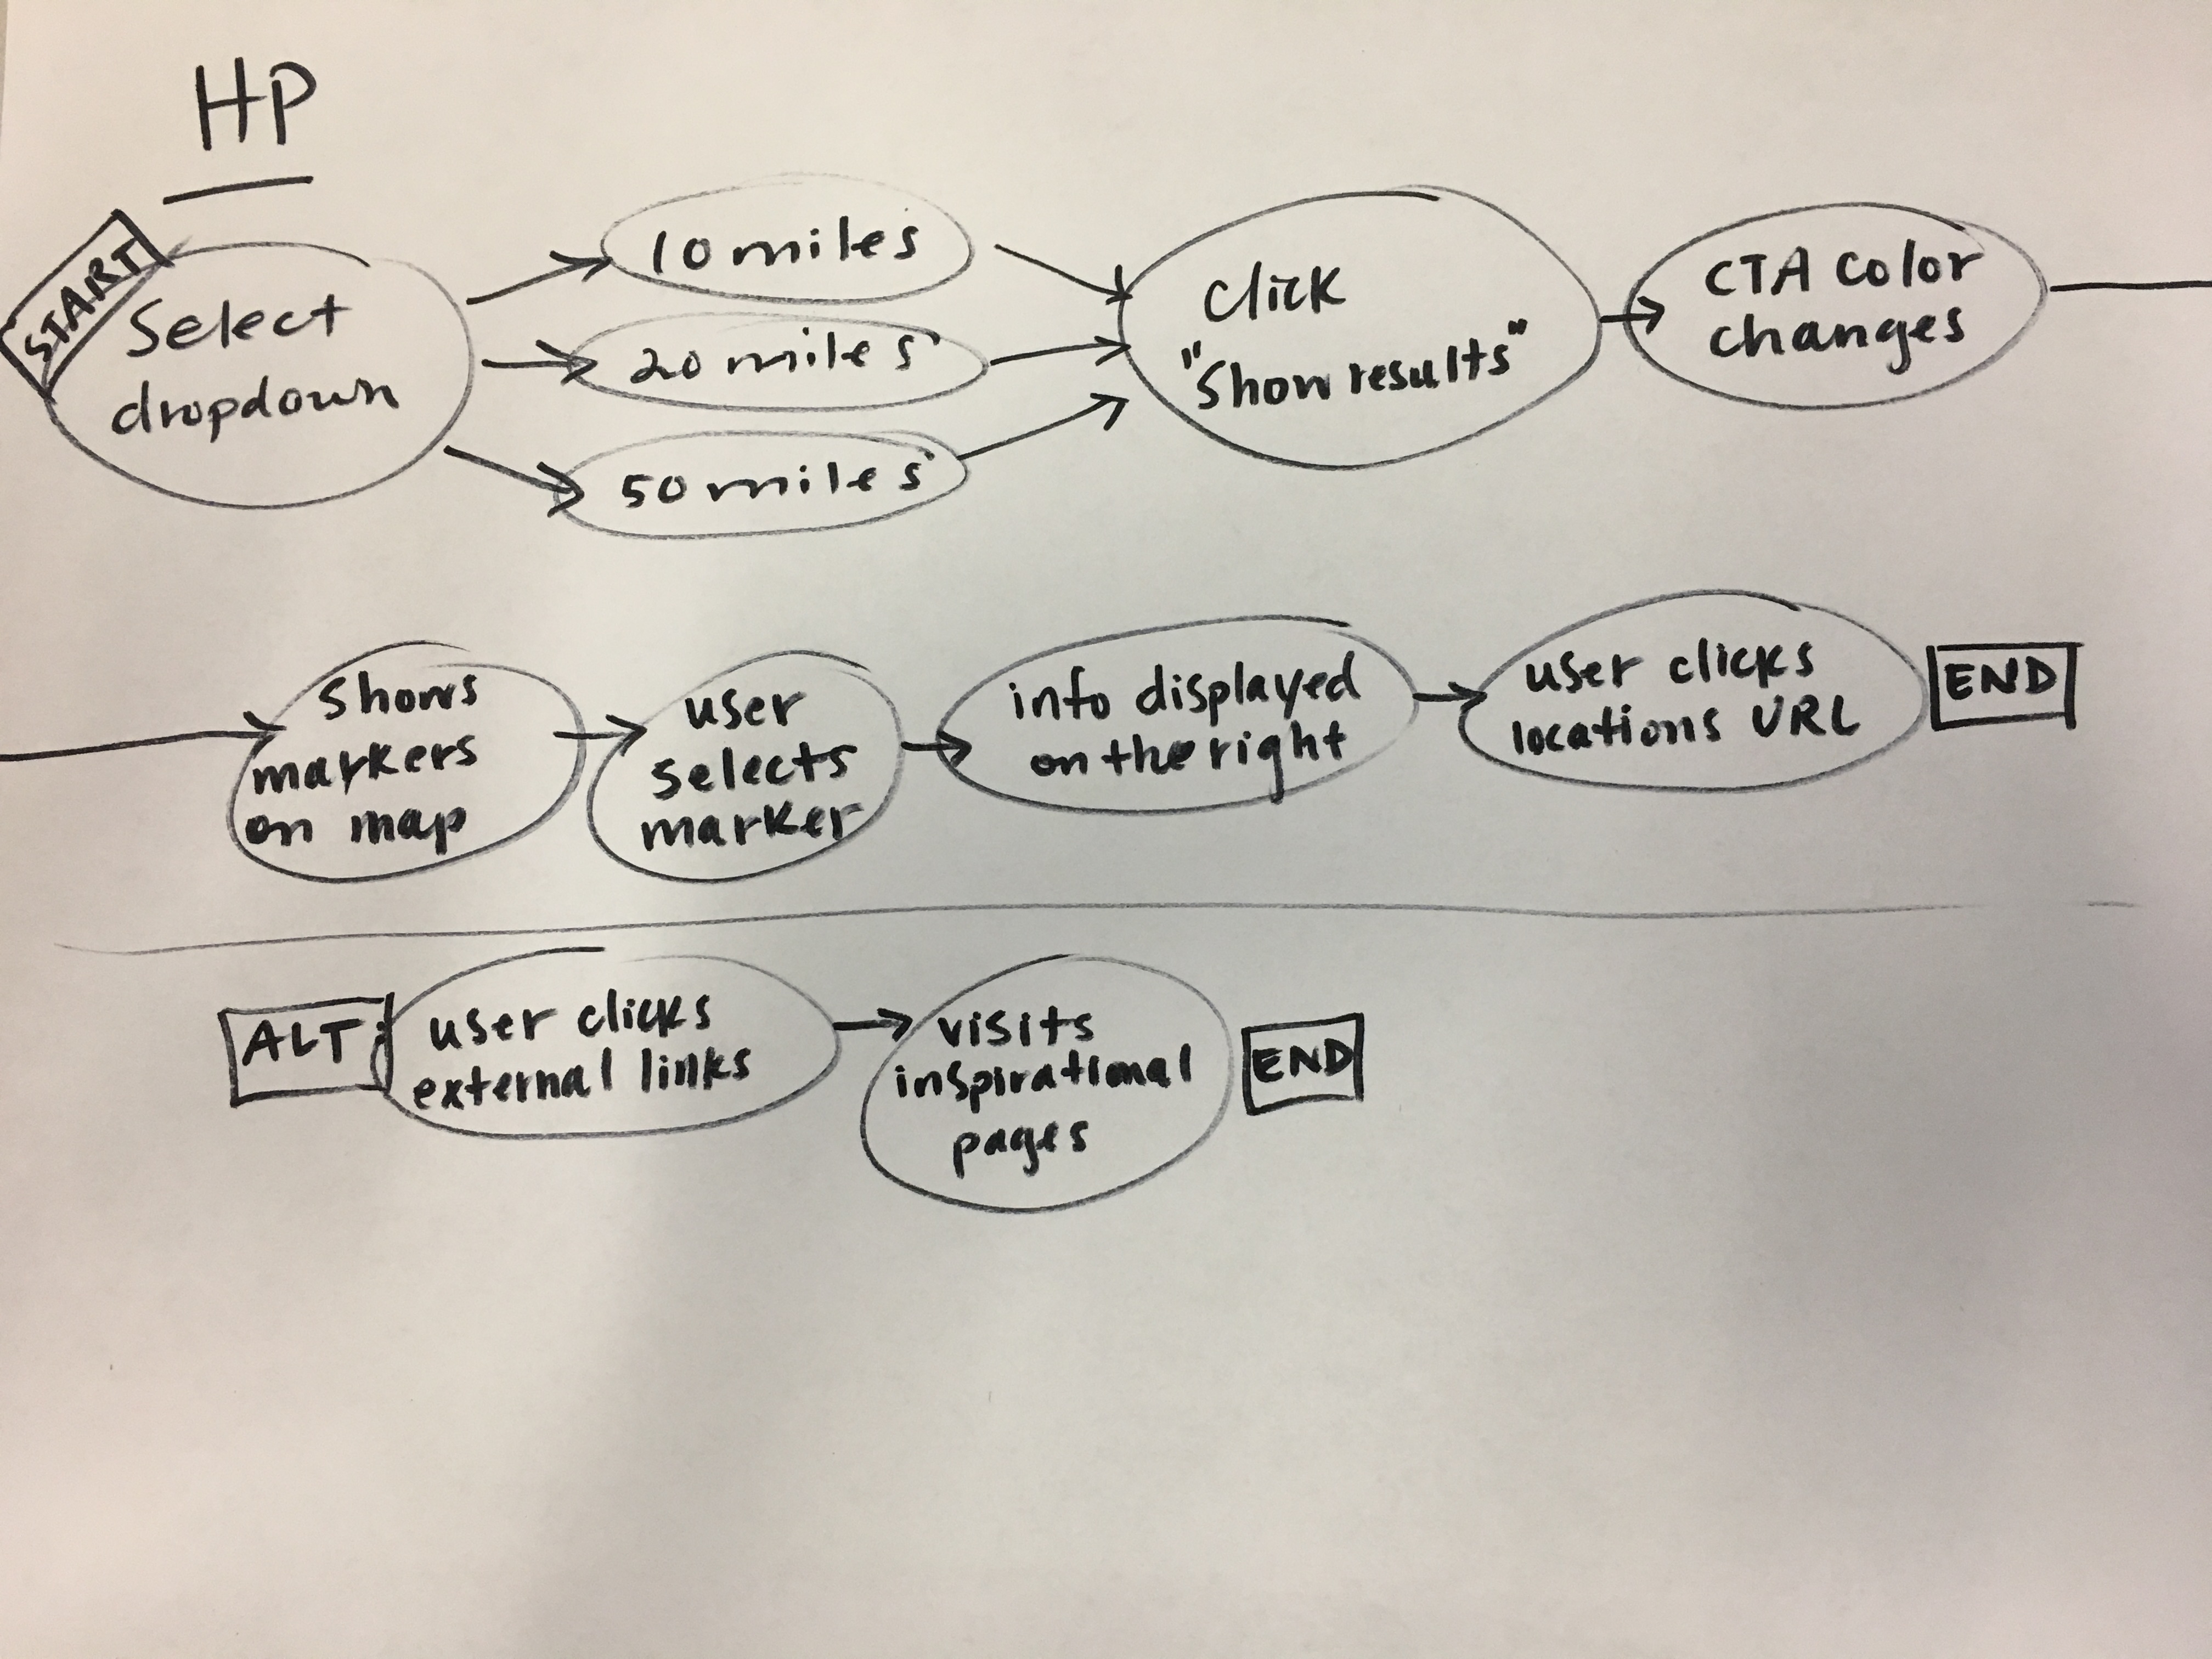 HP
START
Select
dropdown
10 miles
20 miles
50 miles
Click
"Show results"
CTA Color
changes
Shows
markers
on map
user
selects
marker
info displayed
on the right
user clicks
locations URL
END
ALT:
user clicks
external links
visits
inspirational
pages
END